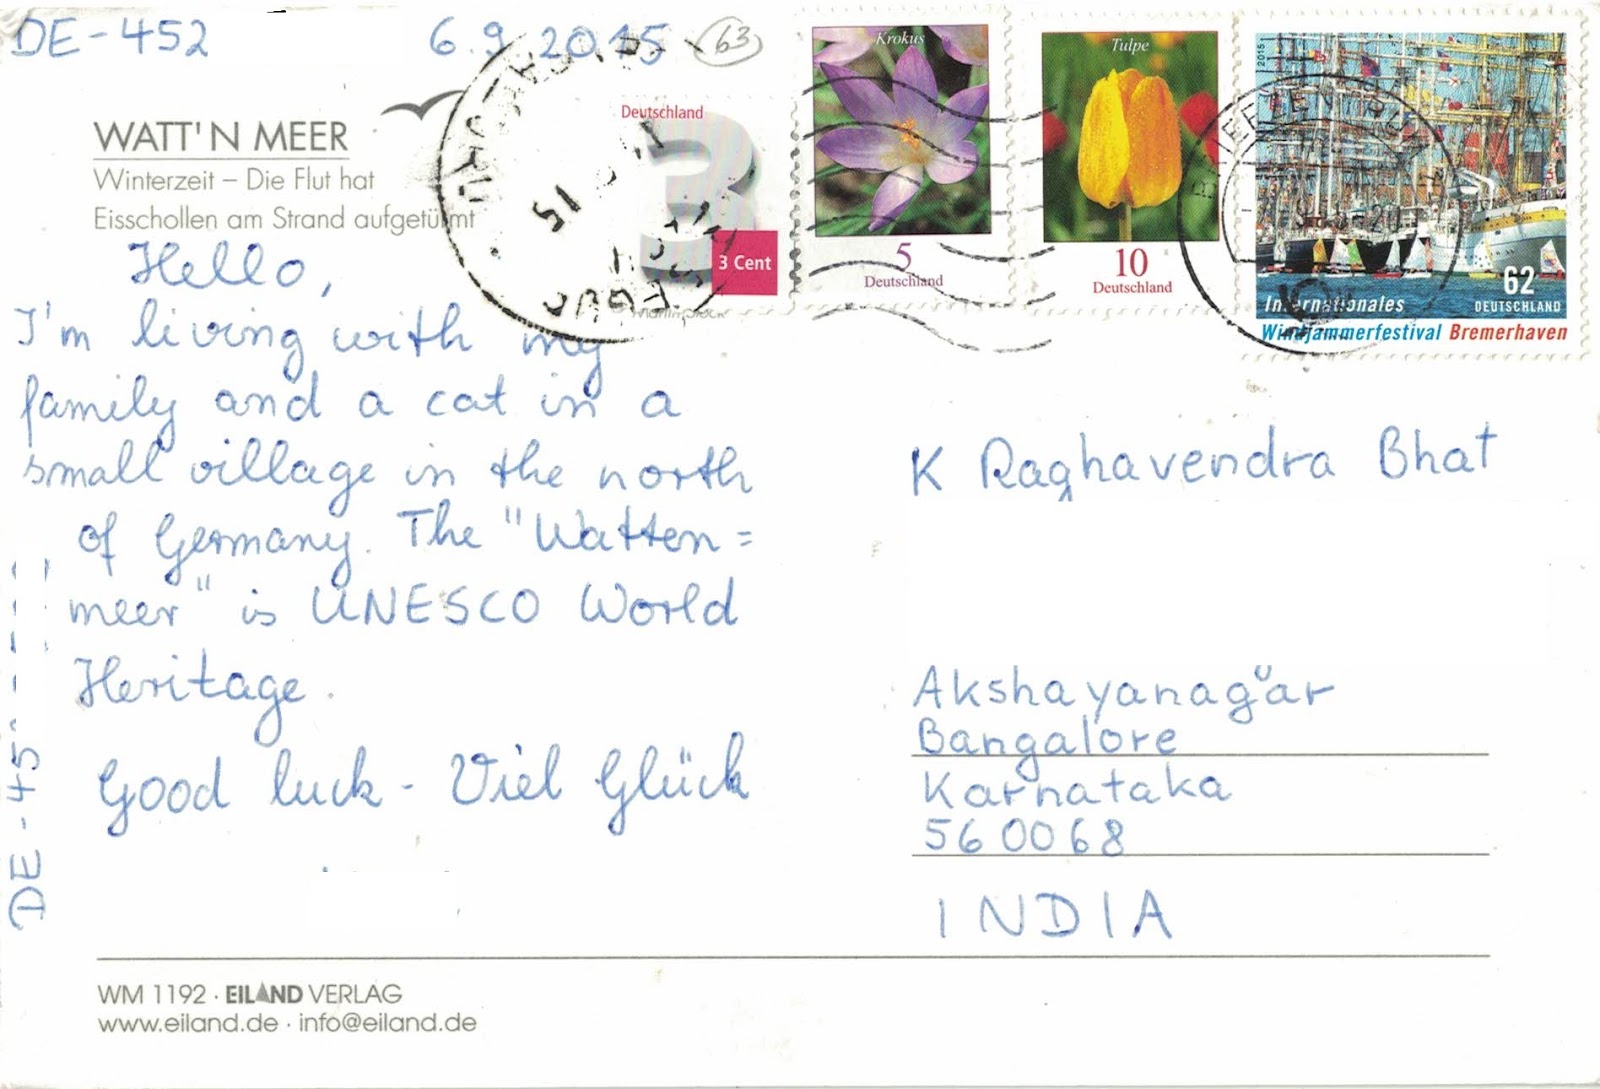 DE-452
6.9.2015
63
WATT'N MEER
Winterzeit – Die Flut hat
Eisschollen am Strand aufgetürmt
Hello,
I'm living with my
family and a cat in a
small village in the north
of Germany. The "Watten=
meer" is UNESCO World
Heritage.
Good luck - Viel Glück
DE-45
WM 1192 · EILAND VERLAG
www.eiland.de · info@eiland.de
Deutschland
3
3 Cent
Krokus
5
Deutschland
Tulpe
10
Deutschland
2015
62
DEUTSCHLAND
Internationales
Windjammerfestival Bremerhaven
15
K Raghavendra Bhat
Akshayanagar
Bangalore
Karnataka
560068
INDIA